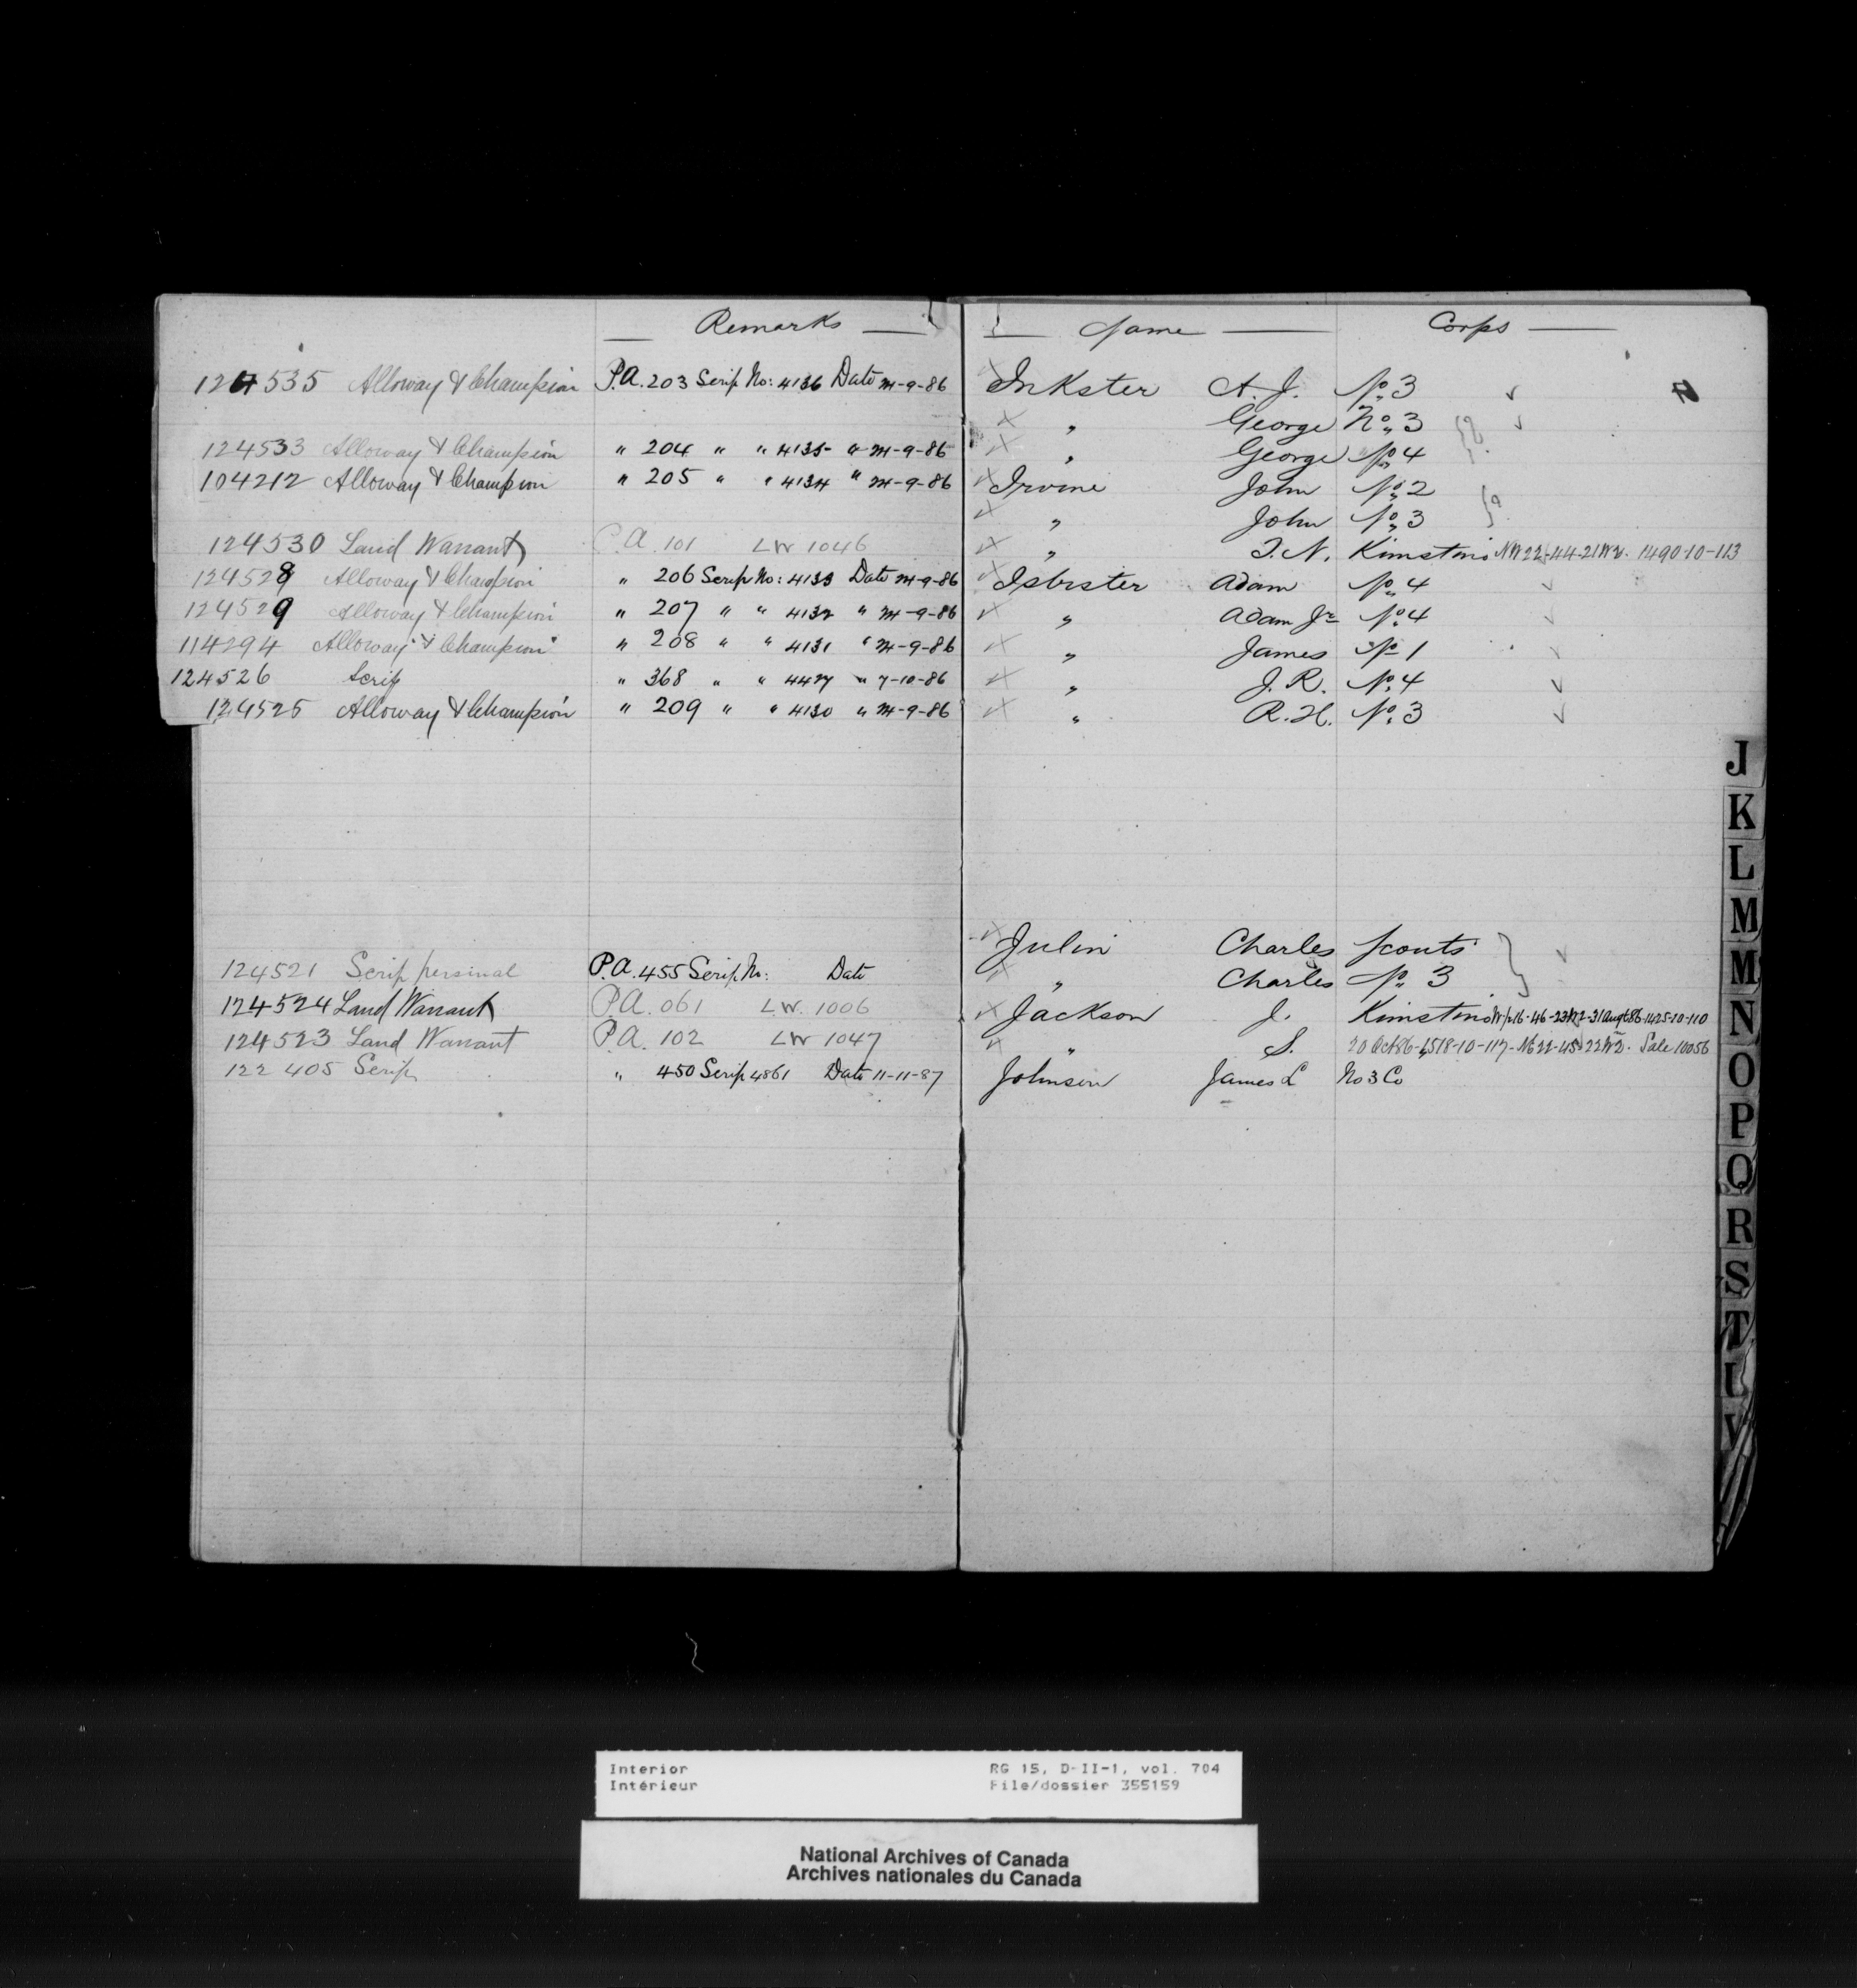 Remarks Name Corps
124535 Alloway & Champion P.A. 203 Scrip No: 4136 Date 24-9-86 Inkster A. J. No. 3
" George No. 3
124533 Alloway & Champion " 204 " " 4135 " 24-9-86 " George No. 4
104212 Alloway & Champion " 205 " " 4134 " 24-9-86 Irvine John No. 2
" John No. 3
124530 Land Warrant P.A. 101 LW 1046 " T. N. Kinistino NW 22-44-21 W2. 1490-10-113
124528 Alloway & Champion " 206 Scrip No: 4133 Date 24-9-86 Isbister Adam No. 4
124529 Alloway & Champion " 207 " " 4132 " 24-9-86 " Adam Jr No. 4
114294 Alloway & Champion " 208 " " 4131 " 24-9-86 " James No 1
124526 Scrip " 368 " " 4427 " 7-10-86 " J. R. No. 4
124525 Alloway & Champion " 209 " " 4130 " 24-9-86 " R. H. No. 3
J
K
L
M
Julin Charles Scouts
124521 Scrip personal P.A. 455 Scrip No: Date " Charles No 3
M
124524 Land Warrant P.A. 061 LW. 1006 Jackson J. Kinistino 16-46-23 W2-31 Augt 86-1425-10-110
N
124523 Land Warrant P.A. 102 LW 1047 " S. 20 Oct 86-1518-10-117-NE 22-45-22 W2. Sale 10056
122405 Scrip " 450 Scrip 4861 Date 11-11-87 Johnson James L No 3 Co
O
P
Q
R
S
T
V
Interior RG 15, D-II-1, vol. 704
Intérieur File/dossier 355159
National Archives of Canada
Archives nationales du Canada